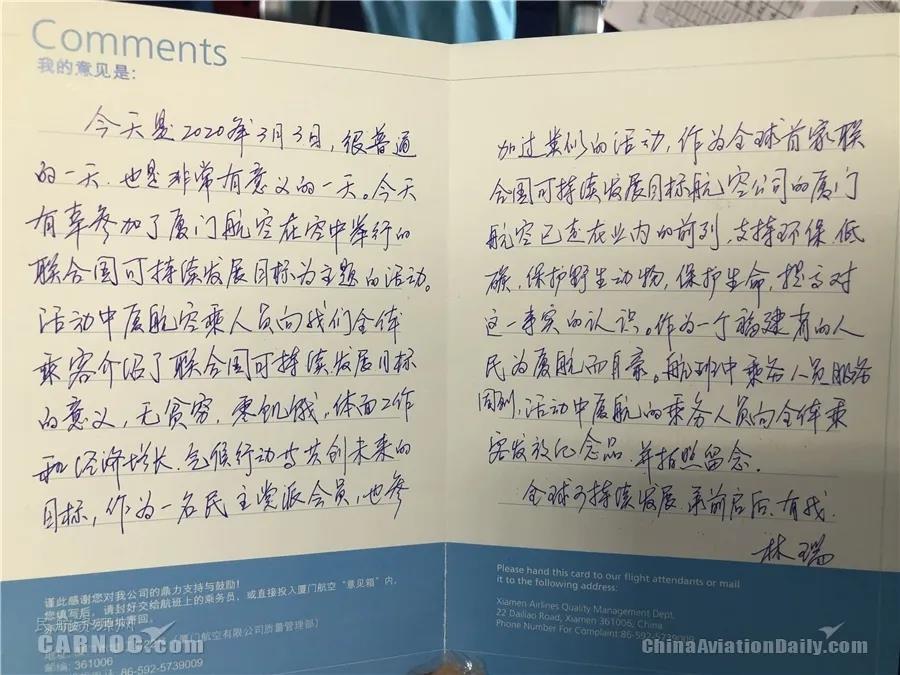 Comments
我的意见是:
今天是2020年3月3日,很普通
的一天.也是非常有意义的一天。今天
有幸参加了厦门航空在空中举行的
联合国可持续发展目标为主题的活动。
活动中厦航空乘人员向我们全体
乘客介绍了联合国可持续发展目标
的意义,无贫穷,零饥饿,体面工作
和经济增长.气候行动与共创未来的
目标,作为一名民主党派会员,也参
谨此感谢您对我公司的鼎力支持与鼓励!
您填写后,请封好交给航班上的乘务员,或直接投入厦门航空“意见箱”内,
(厦门航空有限公司质量管理部)
邮编: 361006
86-592-5739009
CARNOC.com
加过类似的活动,作为全球首家联
合国可持续发展目标航空公司的厦门
航空已走在业内的前列,支持环保.低
碳,保护野生动物,保护生命,提高对
这一事实的认识。作为一个福建省的人
民为厦航而自豪。航班中乘务人员服务
周到,活动中厦航的乘务人员向全体乘
客发放纪念品.并拍照留念.
全球可持续发展.承前启后、有我.
林瑞
Please hand this card to our flight attendants or mail
it to the following address:
Xiamen Airlines Quality Management Dept.
22 Dailiao Road, Xiamen 361006, China
Phone Number For Complaint:86-592-5739009
ChinaAviationDaily.com